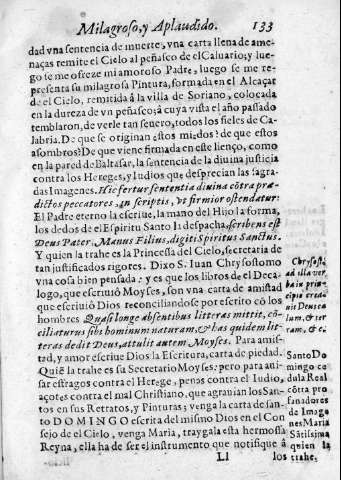 Milagroso, y Aplaudido. 133
dad vna sentencia de muerte, vna carta llena de ame-
naças remite el Cielo al peñasco de el Caluario; y lue-
go se me ofreze mi amoroso Padre, luego se me re-
presenta su milagrosa Pintura, formada en el Alcaçar
de el Cielo, remitida á la villa de Soriano, colocada
en la dureza de vn peñasco; á cuya vista el año passado
temblaron, de verle tan seuero, todos los fieles de Ca-
labria. De que se originan estos miedos? de que estos
asombros? De que viene firmada en este lienço, como
en la pared de Baltasar, la sentencia de la diuina justicia
contra los Hereges, y Iudios que desprecian las sagra-
das Imagenes. Hic fertur sententia diuina cōtra præ-
dictos peccatores, in scriptis, vt firmior ostendatur:
El Padre eterno la escriue, la mano del Hijo la forma,
los dedos de el Espiritu Santo la despacha, scribens est
Deus Pater, Manus Filius, digiti Spiritus Sanctus.
Y quien la trahe es la Princessa del Cielo, secretaria de
tan justificados rigores. Dixo S. Iuan Chrysostomo
vna cosa bien pensada: y es que los libros de el Deca-
logo, que escriuiò Moyses, son vna carta de amistad
que escriuiò Dios reconciliandose por escrito cõ los
hombres Quasi longe absentibus litteras mittit, cō-
ciliaturus sibi hominum naturam, & has quidem lit-
teras dedit Deus, attulit autem Moyses. Para amis-
tad, y amor escriue Dios la Escritura, carta de piedad.
Quiē la trahe es su Secretario Moyses: pero para ani-
sar estragos contra el Herege, penas contra el Iudio,
açotes contra el mal Christiano, que agrauian los San-
tos en sus Retratos, y Pinturas; venga la carta de san-
to DOMINGO escrita del mismo Dios en el Con-
sejo de el Cielo, venga Maria, traygala esta hermosa
Reyna, ella ha de ser el instrumento que notifique â
Ll los
Chrysost.
ad illa ver-
ba in prin-
cipio crea-
uit Deus cæ-
lum, & ter-
ram, & c.
Santo Do-
mingo cc-
dula Real
cōtra pro-
fanadores
de Image
nes Maria
Sātissima
quien la
trahe.